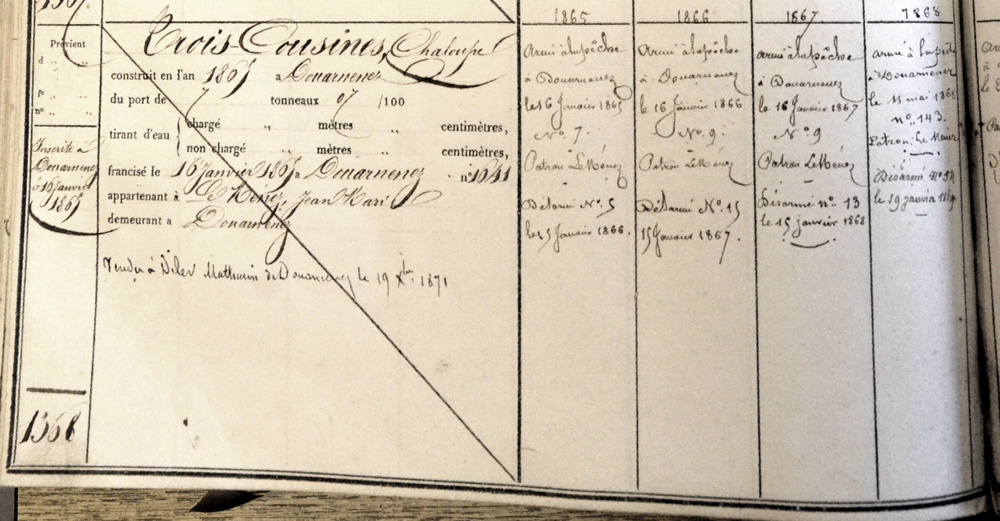 Provient
d
p°
n°
Inscrite à
Douarnenez
le 16 Janvier
1865
1368
Trois-Cousines, Chaloupe
construit en l'an 1865 a Douarnenez
du port de 7 tonneaux 07 /100
tirant d'eau
chargé „ mètres „ centimètres,
non chargé „ mètres „ centimètres,
francisé le 16 janvier 1865 a Douarnenez n° 1641
appartenant à Le Ménez, Jean Marie
demeurant a Douarnenez
Vendu à Mathurin de Douarnenez le 19 Xbre 1871
1865
Armé à la pêche
à Douarnenez
le 16 Janvier 1865
N° 7.
Patron Le Ménez
Désarmé N° 5
le 5 Janvier 1866.
1866
Armé à la pêche
à Douarnenez
le 16 Janvier 1866
N° 9.
Patron Le Ménez
Désarmé N° 15
15 Janvier 1867.
1867
Armé à la pêche
à Douarnenez
le 16 Janvier 1867
N° 9
Patron Le Ménez
Désarmé n° 13
le 15 janvier 1868
1868
armé à la pêche
à Douarnenez
le 11 mai 1868
n° 143.
Patron Le Ménez
Désarmé N° 54
le 19 janvier